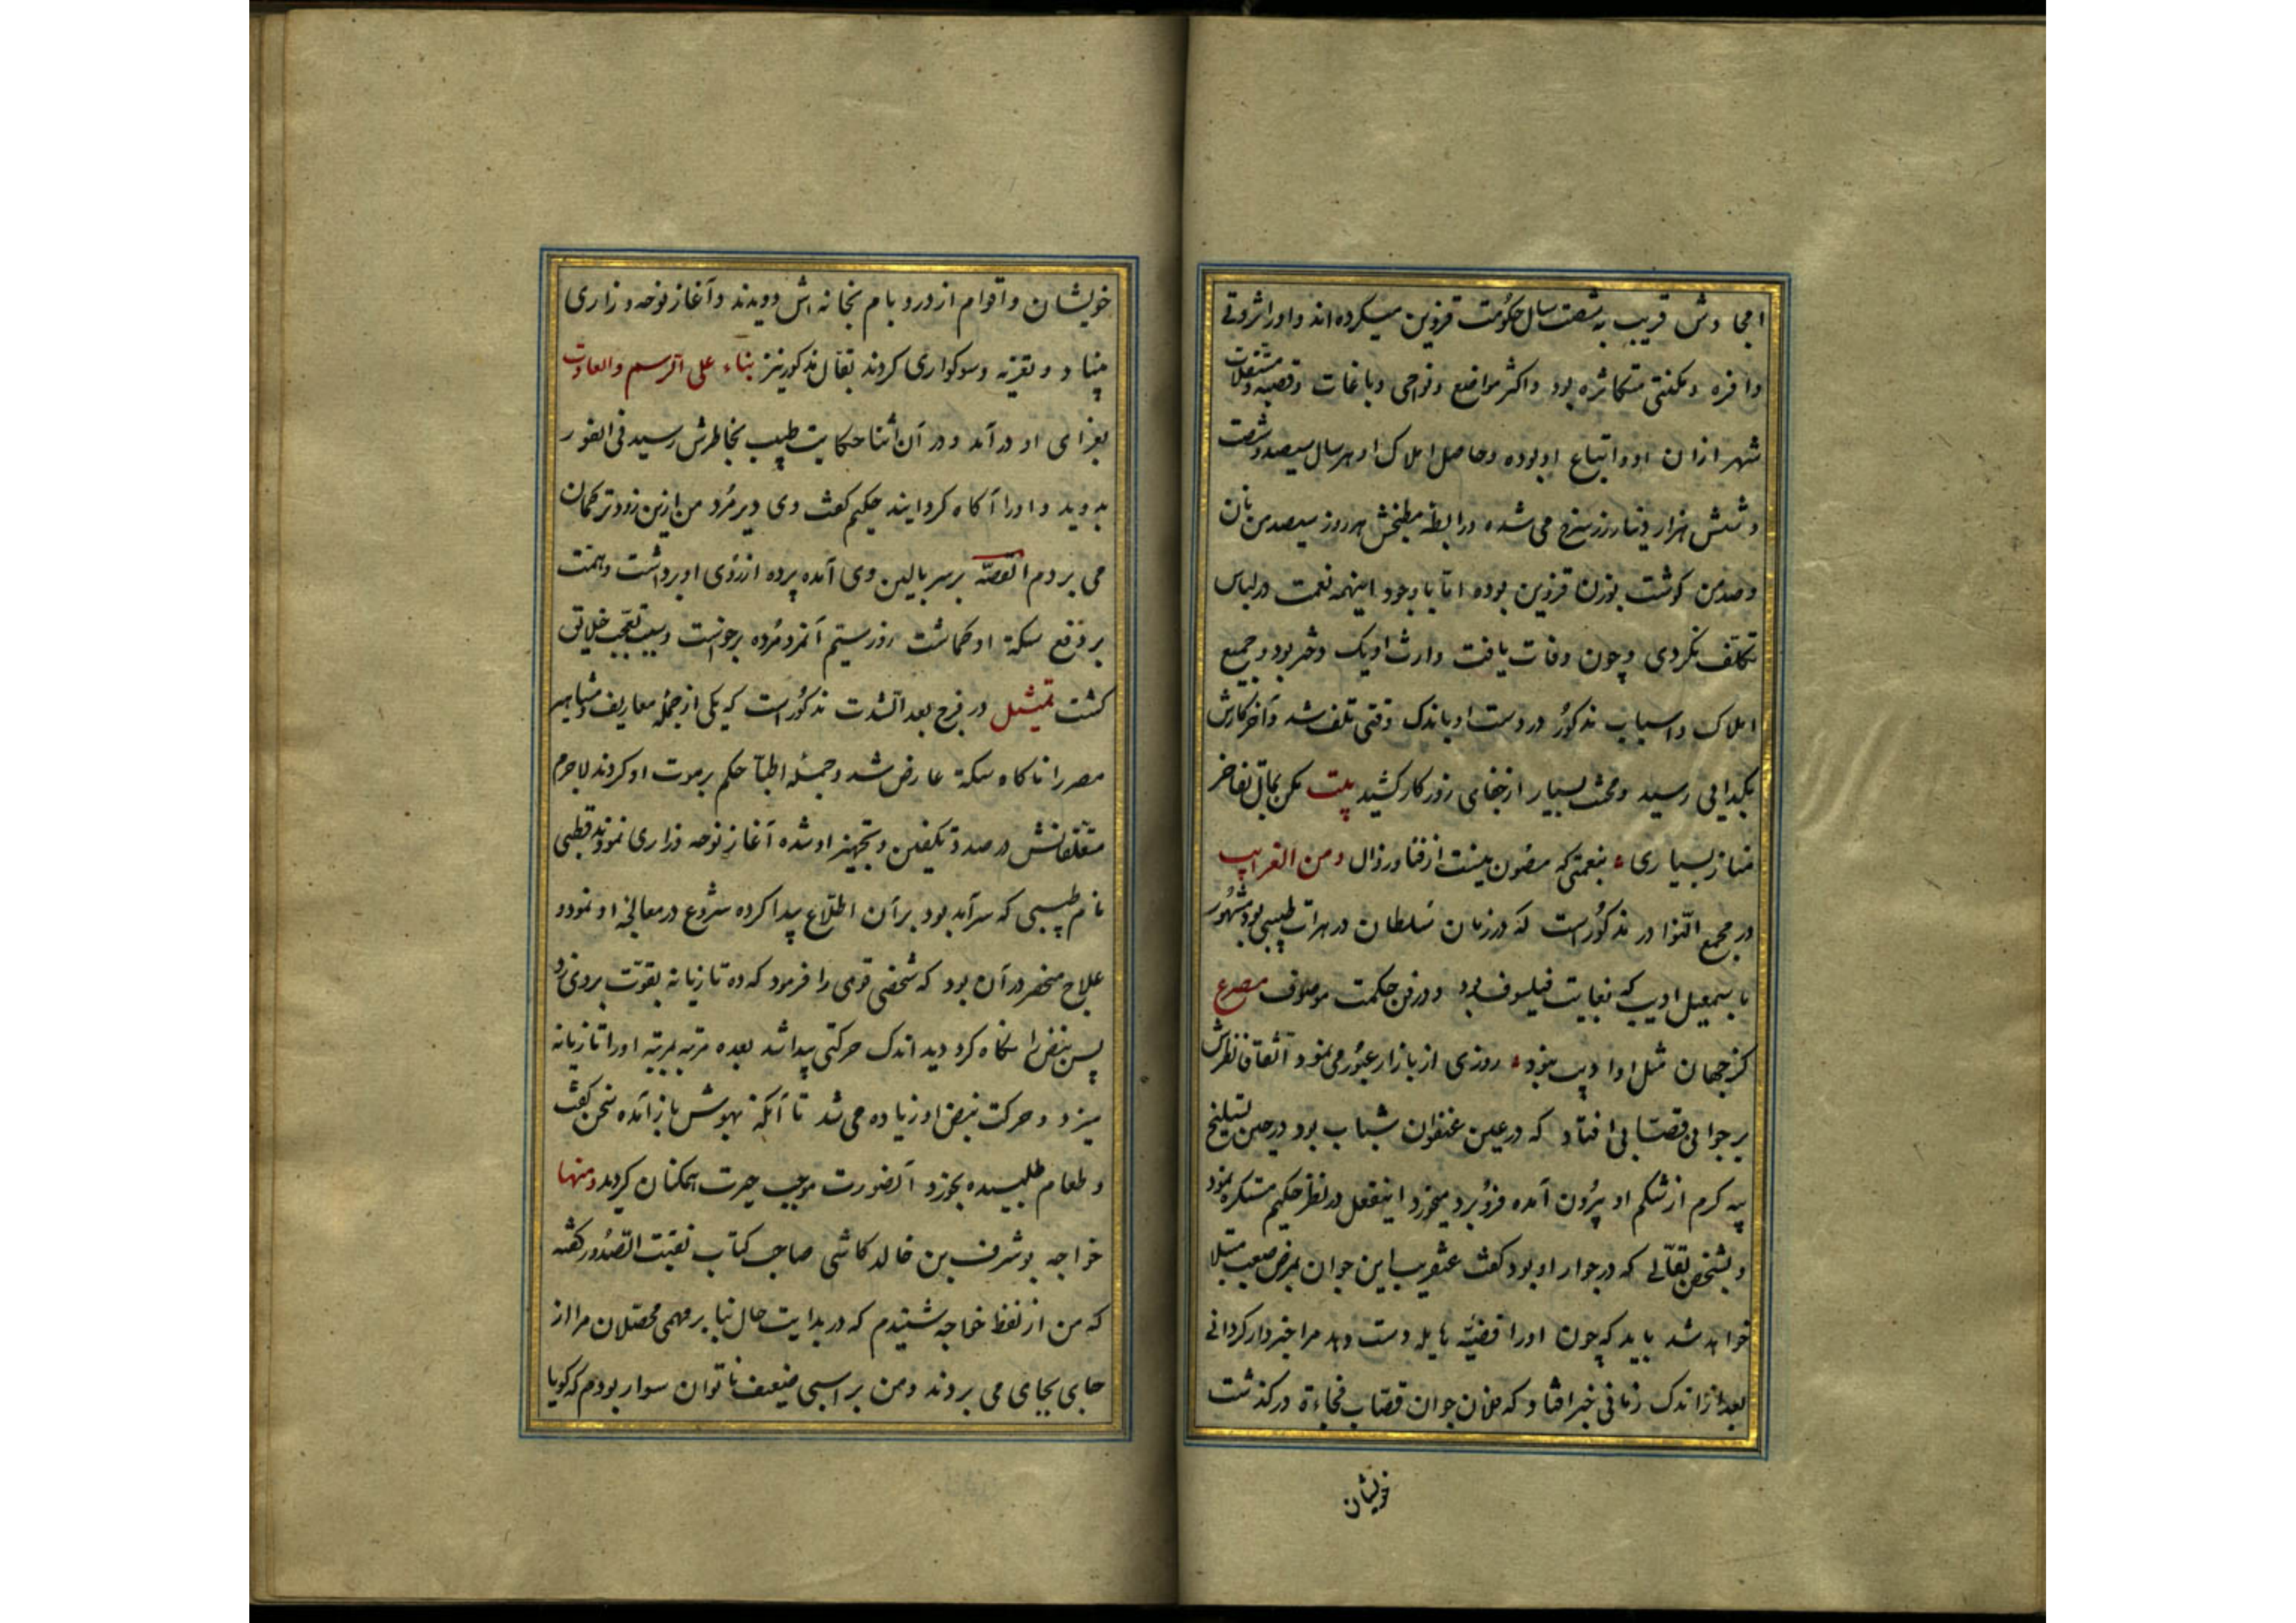 امجادش قریب به شصت سال حکومت قزوین میکرده‌اند و او را ثروتی
وافره و مکنتی متکاثره بود و اکثر مواضع و نواحی و باغات و قصبه و مستغلات
شهر ازان او و اتباع او بوده و حاصل املاک او هر سال سیصد و شصت
و شش هزار دینار زر سرخ می شده و رابطه مطبخش هر روز سیصد من نان
و صد من کوشت بوزن قزوین بوده اما با وجود اینهمه نعمت در لباس
تکلف نکردی و چون وفات یافت وارث او یک دختر بود و جمیع
املاک و اسباب مذکور در دست او باندک وقتی تلف شد و آخر کارش
بکدایی رسید و محنت بسیار از جفای روزکار کشید بیت مکن بمال تفاخر
مناز بسیاری بنعمتی که مصون نیست از فنا و زوال ومن الغرایب
در مجمع النوادر مذکور است که در زمان سلطان در هرات طبیبی بود مشهور
باسمعیل ادیب که بغایت فیلسوف بود و در فن حکمت موصوف مصرع
کز جهان مثل او ادیب نبود روزی از بازار عبور می نمود اتفاقا نظرش
بر جوانی قصابی افتاد که در عین عنفوان شباب بود در حین تسلیخ
پیه کرم از شکم او بیرون آمده فرو برد میخورد اینفعل در نظر حکیم مستکره نمود
و بشخص بقالی که در جوار او بود کفت عنقریب این جوان بمرض صعب مبتلا
خواهد شد باید که چون او را قضیه هایله دست دهد مرا خبردار کردانی
بعد از اندک زمانی خبر افتاد که فلان جوان قصاب فجاءة درکذشت
خویشان
خویشان و اقوام از در و بام بخانه اش دویدند و آغاز نوحه و زاری
بنیاد و تعزیه و سوکواری کردند بقال مذکور نیز بناء علی الرسم والعادت
بعزای او درآمد و در آن اثنا حکایت طبیب بخاطرش رسید فی الفور
بدوید و او را آکاه کردانید حکیم کفت وی دیر مُرد من ازین زودتر کمان
می بردم القصه بر سر بالین وی آمده پرده از روی او برداشت و همت
بر دفع سکته او کماشت روز سیم آنمرد مُرده برخواست و سبب تعجب خلایق
کشت تمثیل در فرج بعد الشدت مذکور است که یکی از جمله معاریف و مشاهیر
مصر را ناکاه سکته عارض شد و جمله اطبا حکم بر موت او کردند لاجرم
متعلقانش در صدد تکفین و تجهیز او شده آغاز نوحه و زاری نمودند قطبی
نام طبیبی که سرآمد بود بر آن اطلاع پیدا کرده شروع در معالجه او نمود و
علاج منحصر در آن بود که شخصی قوی را فرمود که ده تازیانه بقوت بر وی زد
پس نبض را نکاه کرد دید اندک حرکتی پیدا شد بعده مرتبه بمرتبه او را تازیانه
میزد و حرکت نبض او زیاده می شد تا آنکه بهوش باز آمده سخن کفت
و طعام طلبیده بخورد آنصورت موجب حیرت همکنان کردید ومنها
خواجه بوشرف بن خالد کاشی صاحب کتاب نفثت الصدور کفته
که من از لفظ خواجه شنیدم که در بدایت حال بنا بر مهمی محصلان مرا از
جایی بجای می بردند و من بر اسبی ضعیف ناتوان سوار بودم که کویا